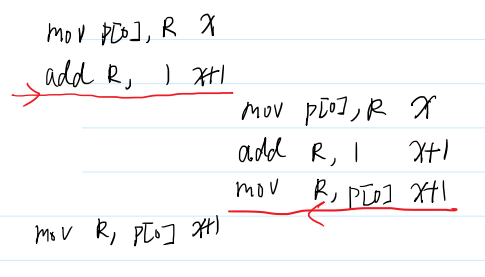 mov p[0], R x
add R, 1 x+1
mov p[0], R x
add R, 1 x+1
mov R, p[0] x+1
mov R, p[0] x+1